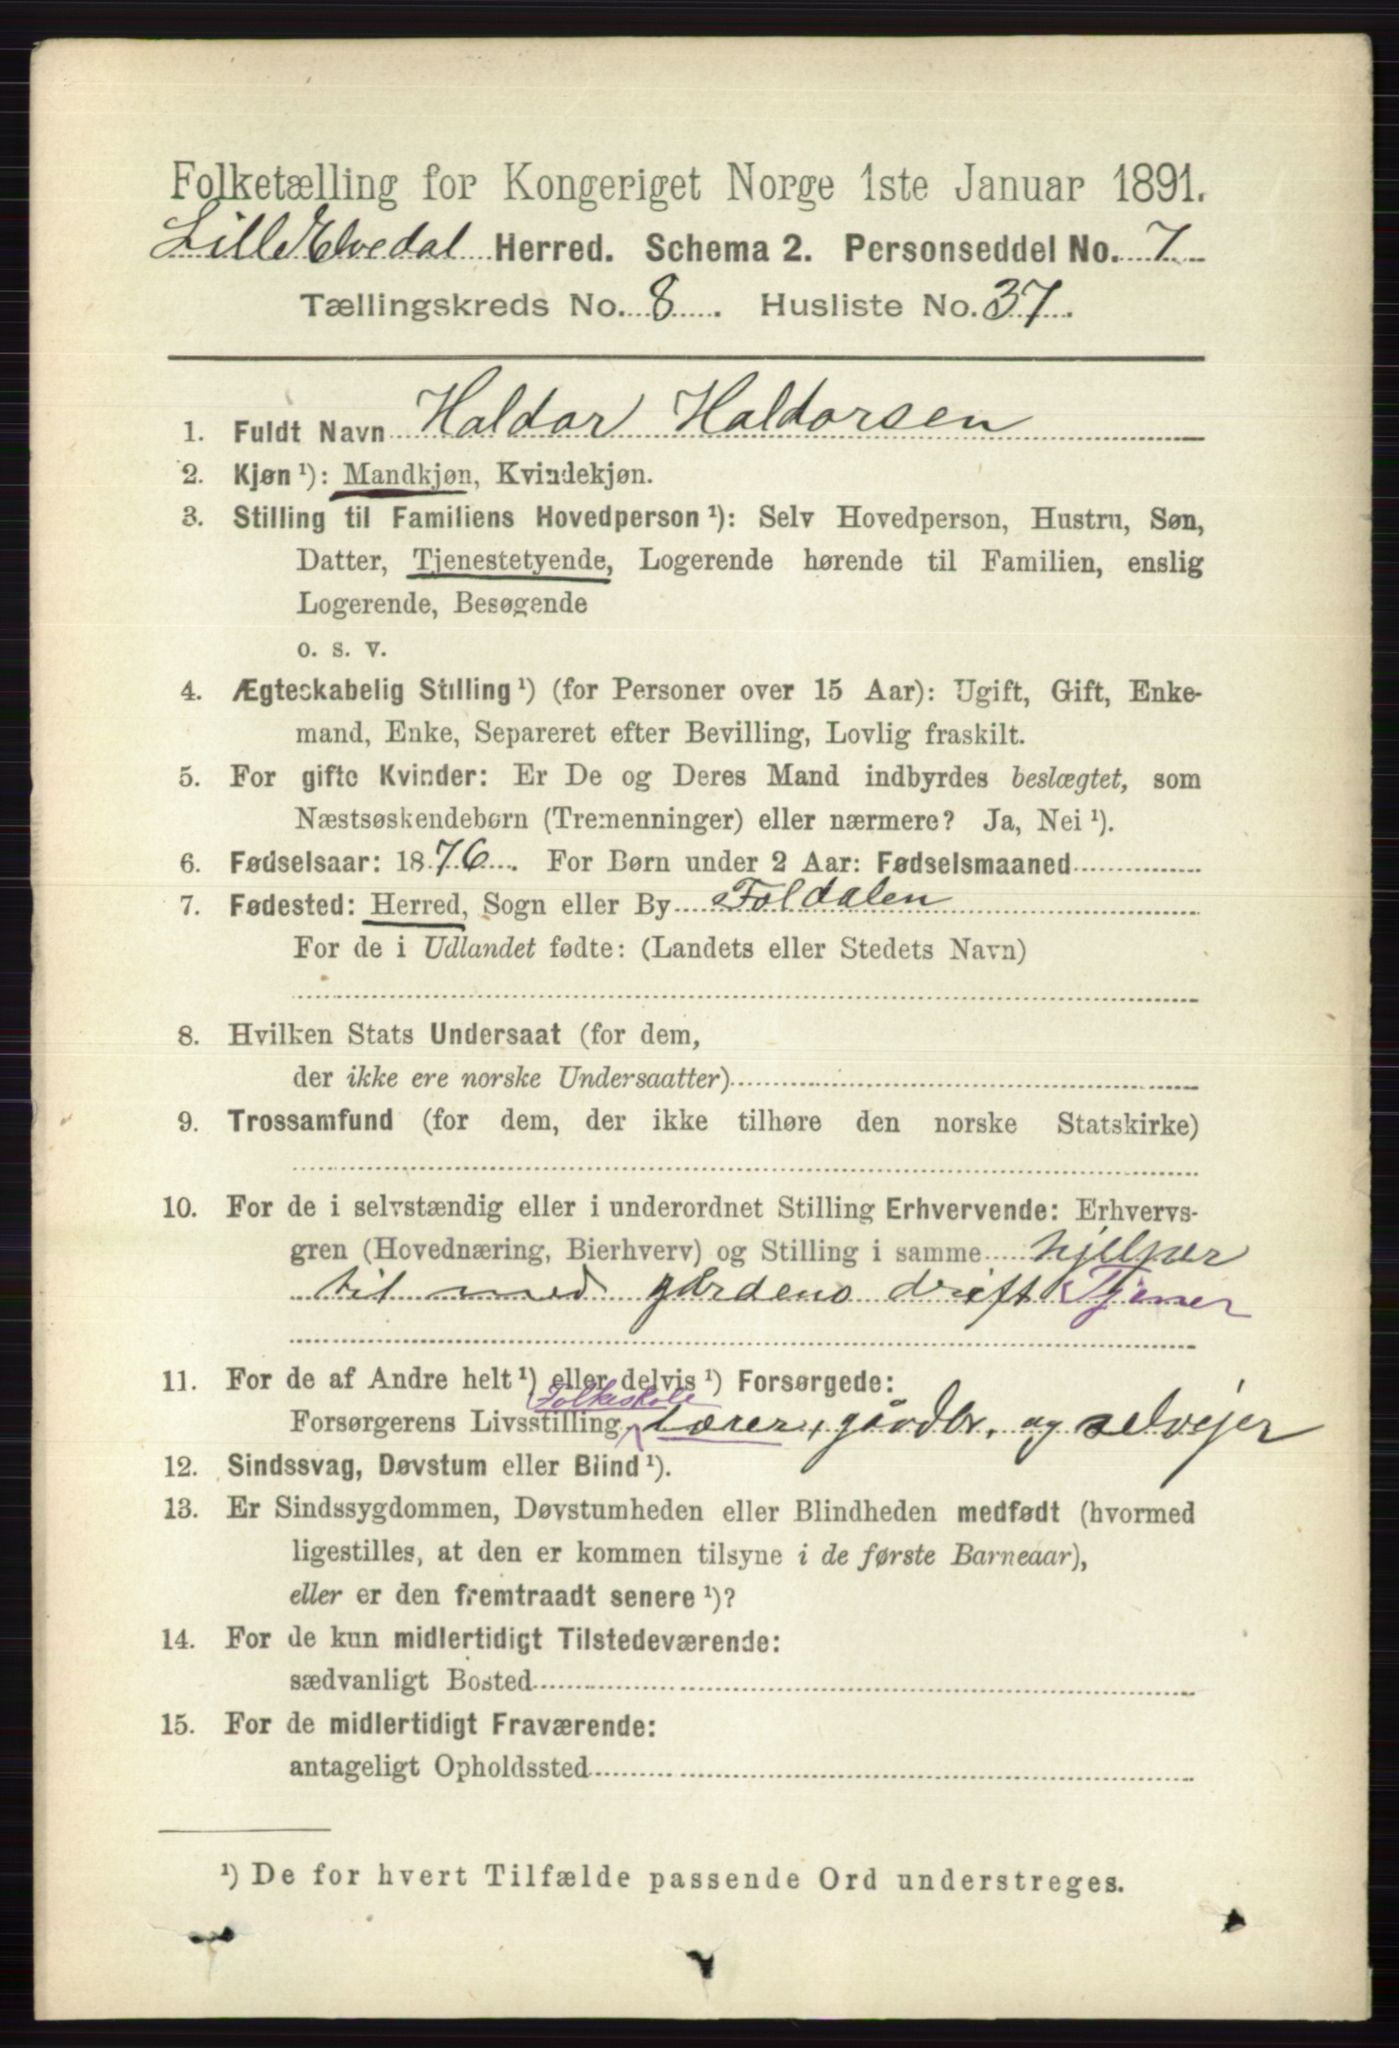 Folketælling for Kongeriget Norge 1ste Januar 1891.
Lille Elvedal Herred. Schema 2. Personseddel No. 7
Tællingskreds No. 8. Husliste No. 37.
1. Fuldt Navn Haldor Haldorsen
2. Kjøn ¹): Mandkjøn, Kvindekjøn.
3. Stilling til Familiens Hovedperson ¹): Selv Hovedperson, Hustru, Søn,
Datter, Tjenestetyende, Logerende hørende til Familien, enslig
Logerende, Besøgende
o. s. v.
4. Ægteskabelig Stilling ¹) (for Personer over 15 Aar): Ugift, Gift, Enke-
mand, Enke, Separeret efter Bevilling, Lovlig fraskilt.
5. For gifte Kvinder: Er De og Deres Mand indbyrdes beslægtet, som
Næstsøskendebørn (Tremenninger) eller nærmere? Ja, Nei ¹).
6. Fødselsaar: 1876. For Børn under 2 Aar: Fødselsmaaned
7. Fødested: Herred, Sogn eller By Foldalen
For de i Udlandet fødte: (Landets eller Stedets Navn)
8. Hvilken Stats Undersaat (for dem,
der ikke ere norske Undersaatter)
9. Trossamfund (for dem, der ikke tilhøre den norske Statskirke)
10. For de i selvstændig eller i underordnet Stilling Erhvervende: Erhvervs-
gren (Hovednæring, Bierhverv) og Stilling i samme hjelper
til med gårdens drift Tjener
11. For de af Andre helt ¹) eller delvis ¹) Forsørgede:
Folkeskole
Forsørgerens Livsstilling lærer, gårdbr. og selvejer
12. Sindssvag, Døvstum eller Blind ¹).
13. Er Sindssygdommen, Døvstumheden eller Blindheden medfødt (hvormed
ligestilles, at den er kommen tilsyne i de første Barneaar),
eller er den fremtraadt senere ¹)?
14. For de kun midlertidigt Tilstedeværende:
sædvanligt Bosted
15. For de midlertidigt Fraværende:
antageligt Opholdssted
¹) De for hvert Tilfælde passende Ord understreges.